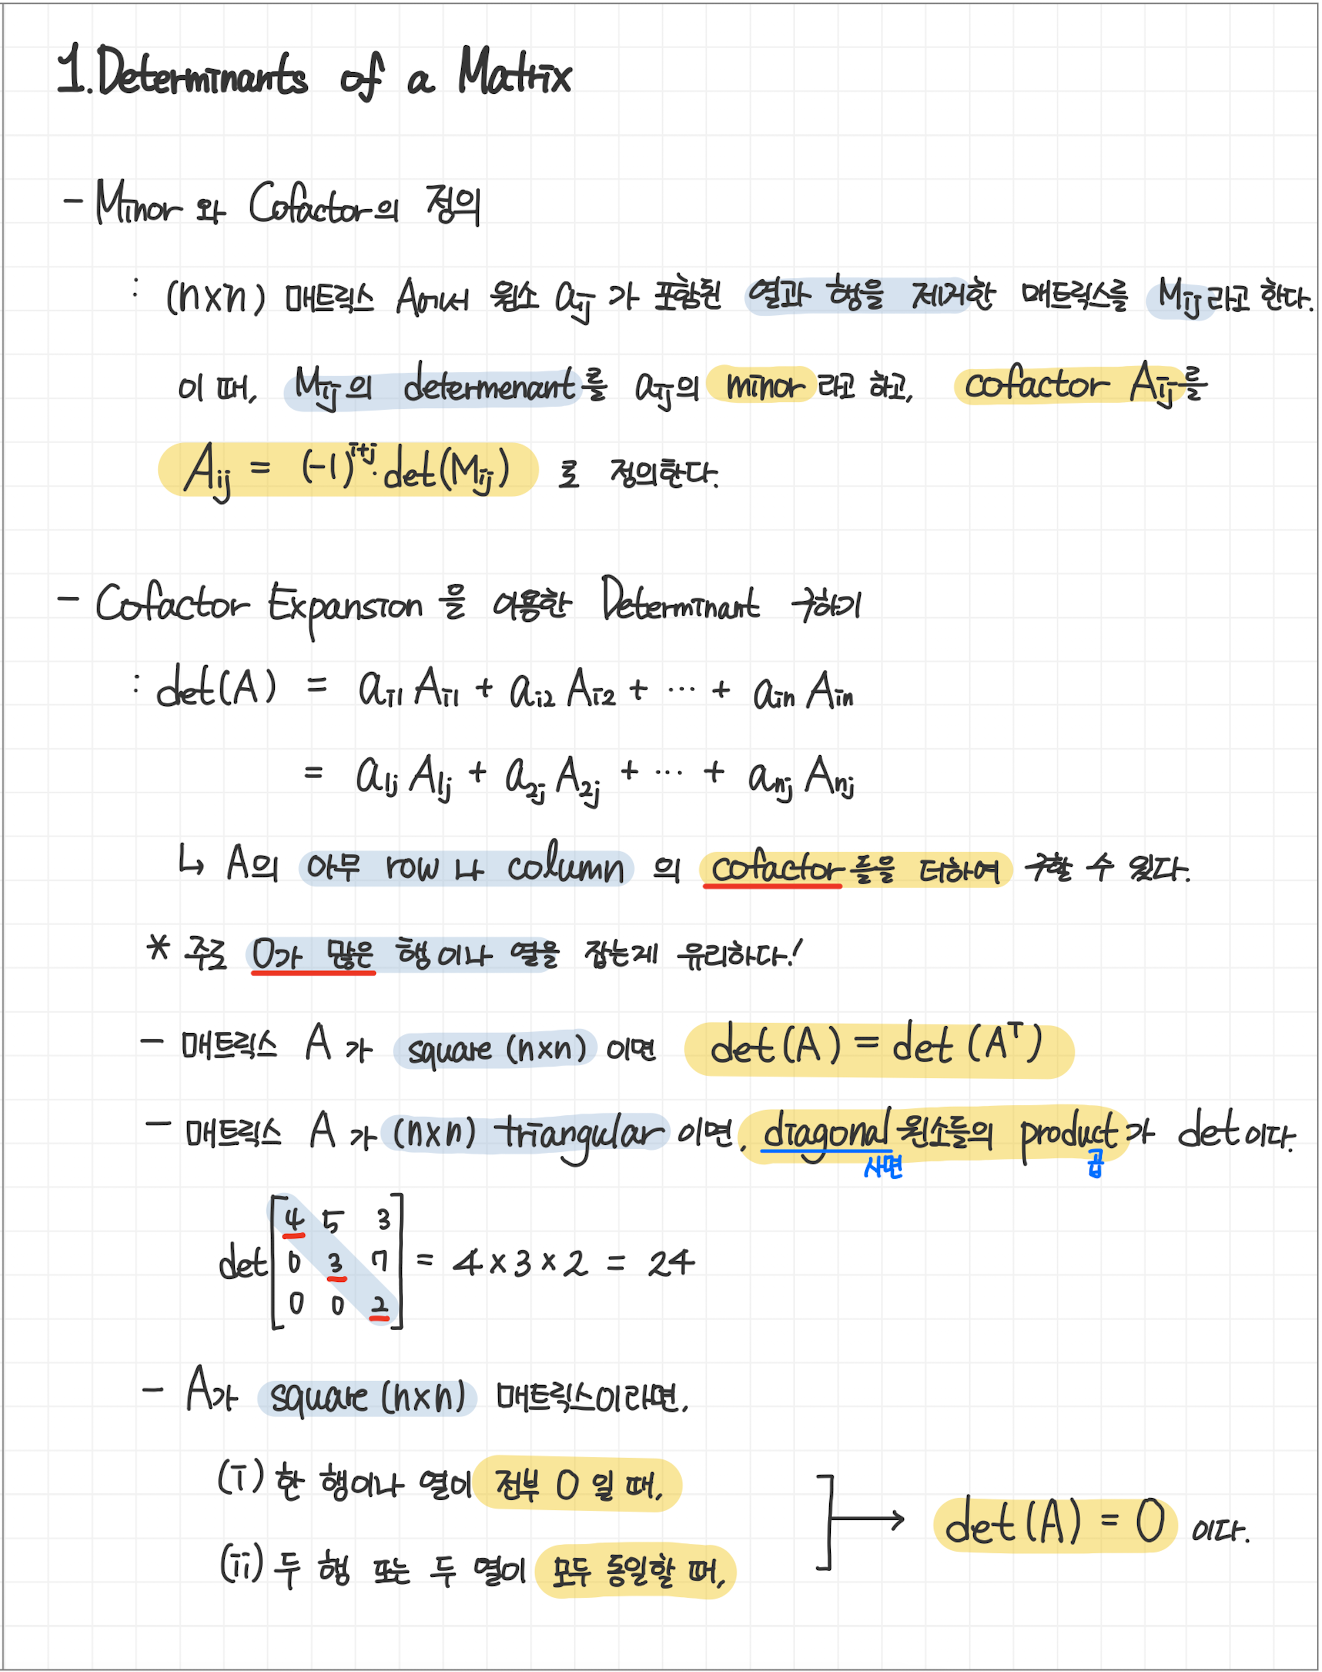 1. Determinants of a Matrix
- Minor와 Cofactor의 정의
: (n×n) 매트릭스 A에서 원소 aij가 포함된 열과 행을 제거한 매트릭스를 Mij라고 한다.
이 때, Mij의 determenant를 aij의 minor라고 하고, cofactor Aij를
Aij = (-1)^i+j · det(Mij) 로 정의한다.
- Cofactor Expansion을 이용한 Determinant 구하기
: det(A) = ai1 Ai1 + ai2 Ai2 + ⋯ + ain Ain
= a1j A1j + a2j A2j + ⋯ + anj Anj
↳ A의 아무 row 나 column 의 cofactor들을 더하여 구할 수 있다.
* 주로 0가 많은 행이나 열을 잡는게 유리하다!
- 매트릭스 A가 square (n×n) 이면 det(A) = det(A^T)
- 매트릭스 A가 (n×n) triangular이면, diagonal 원소들의 product가 det이다.
사면 곱
4 5 3
det 0 3 7 = 4×3×2 = 24
0 0 2
- A가 square (n×n) 매트릭스이라면,
(i) 한 행이나 열이 전부 0일 때,
→ det(A) = 0 이다.
(ii) 두 행 또는 두 열이 모두 동일할 때,